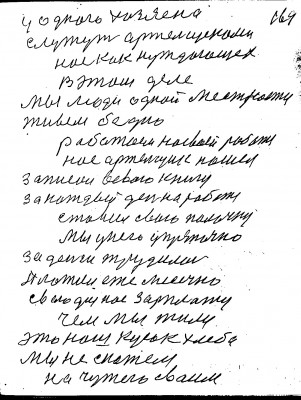 у одного хозяена 169
служут артельщиками
нас как нуждающех
в этом деле
мы люди одной местности
живем бедно
работаем на своей работе
нас артельщик нашел
записал в свою книгу
за каждый день работы
ставил свою палочку
мы у него
за делги трудились
платил ежемесечно
свогодную зарплату
чем мы жили
это наш кусок хлеба
мы не скажем
на чужего своим